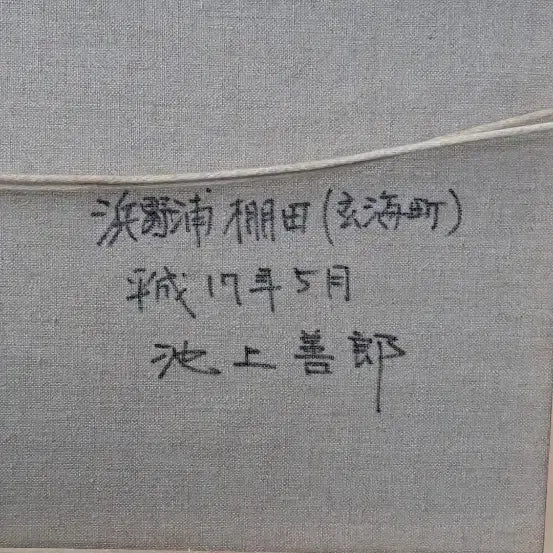 浜野浦棚田(玄海町)
平成17年5月
池上善郎